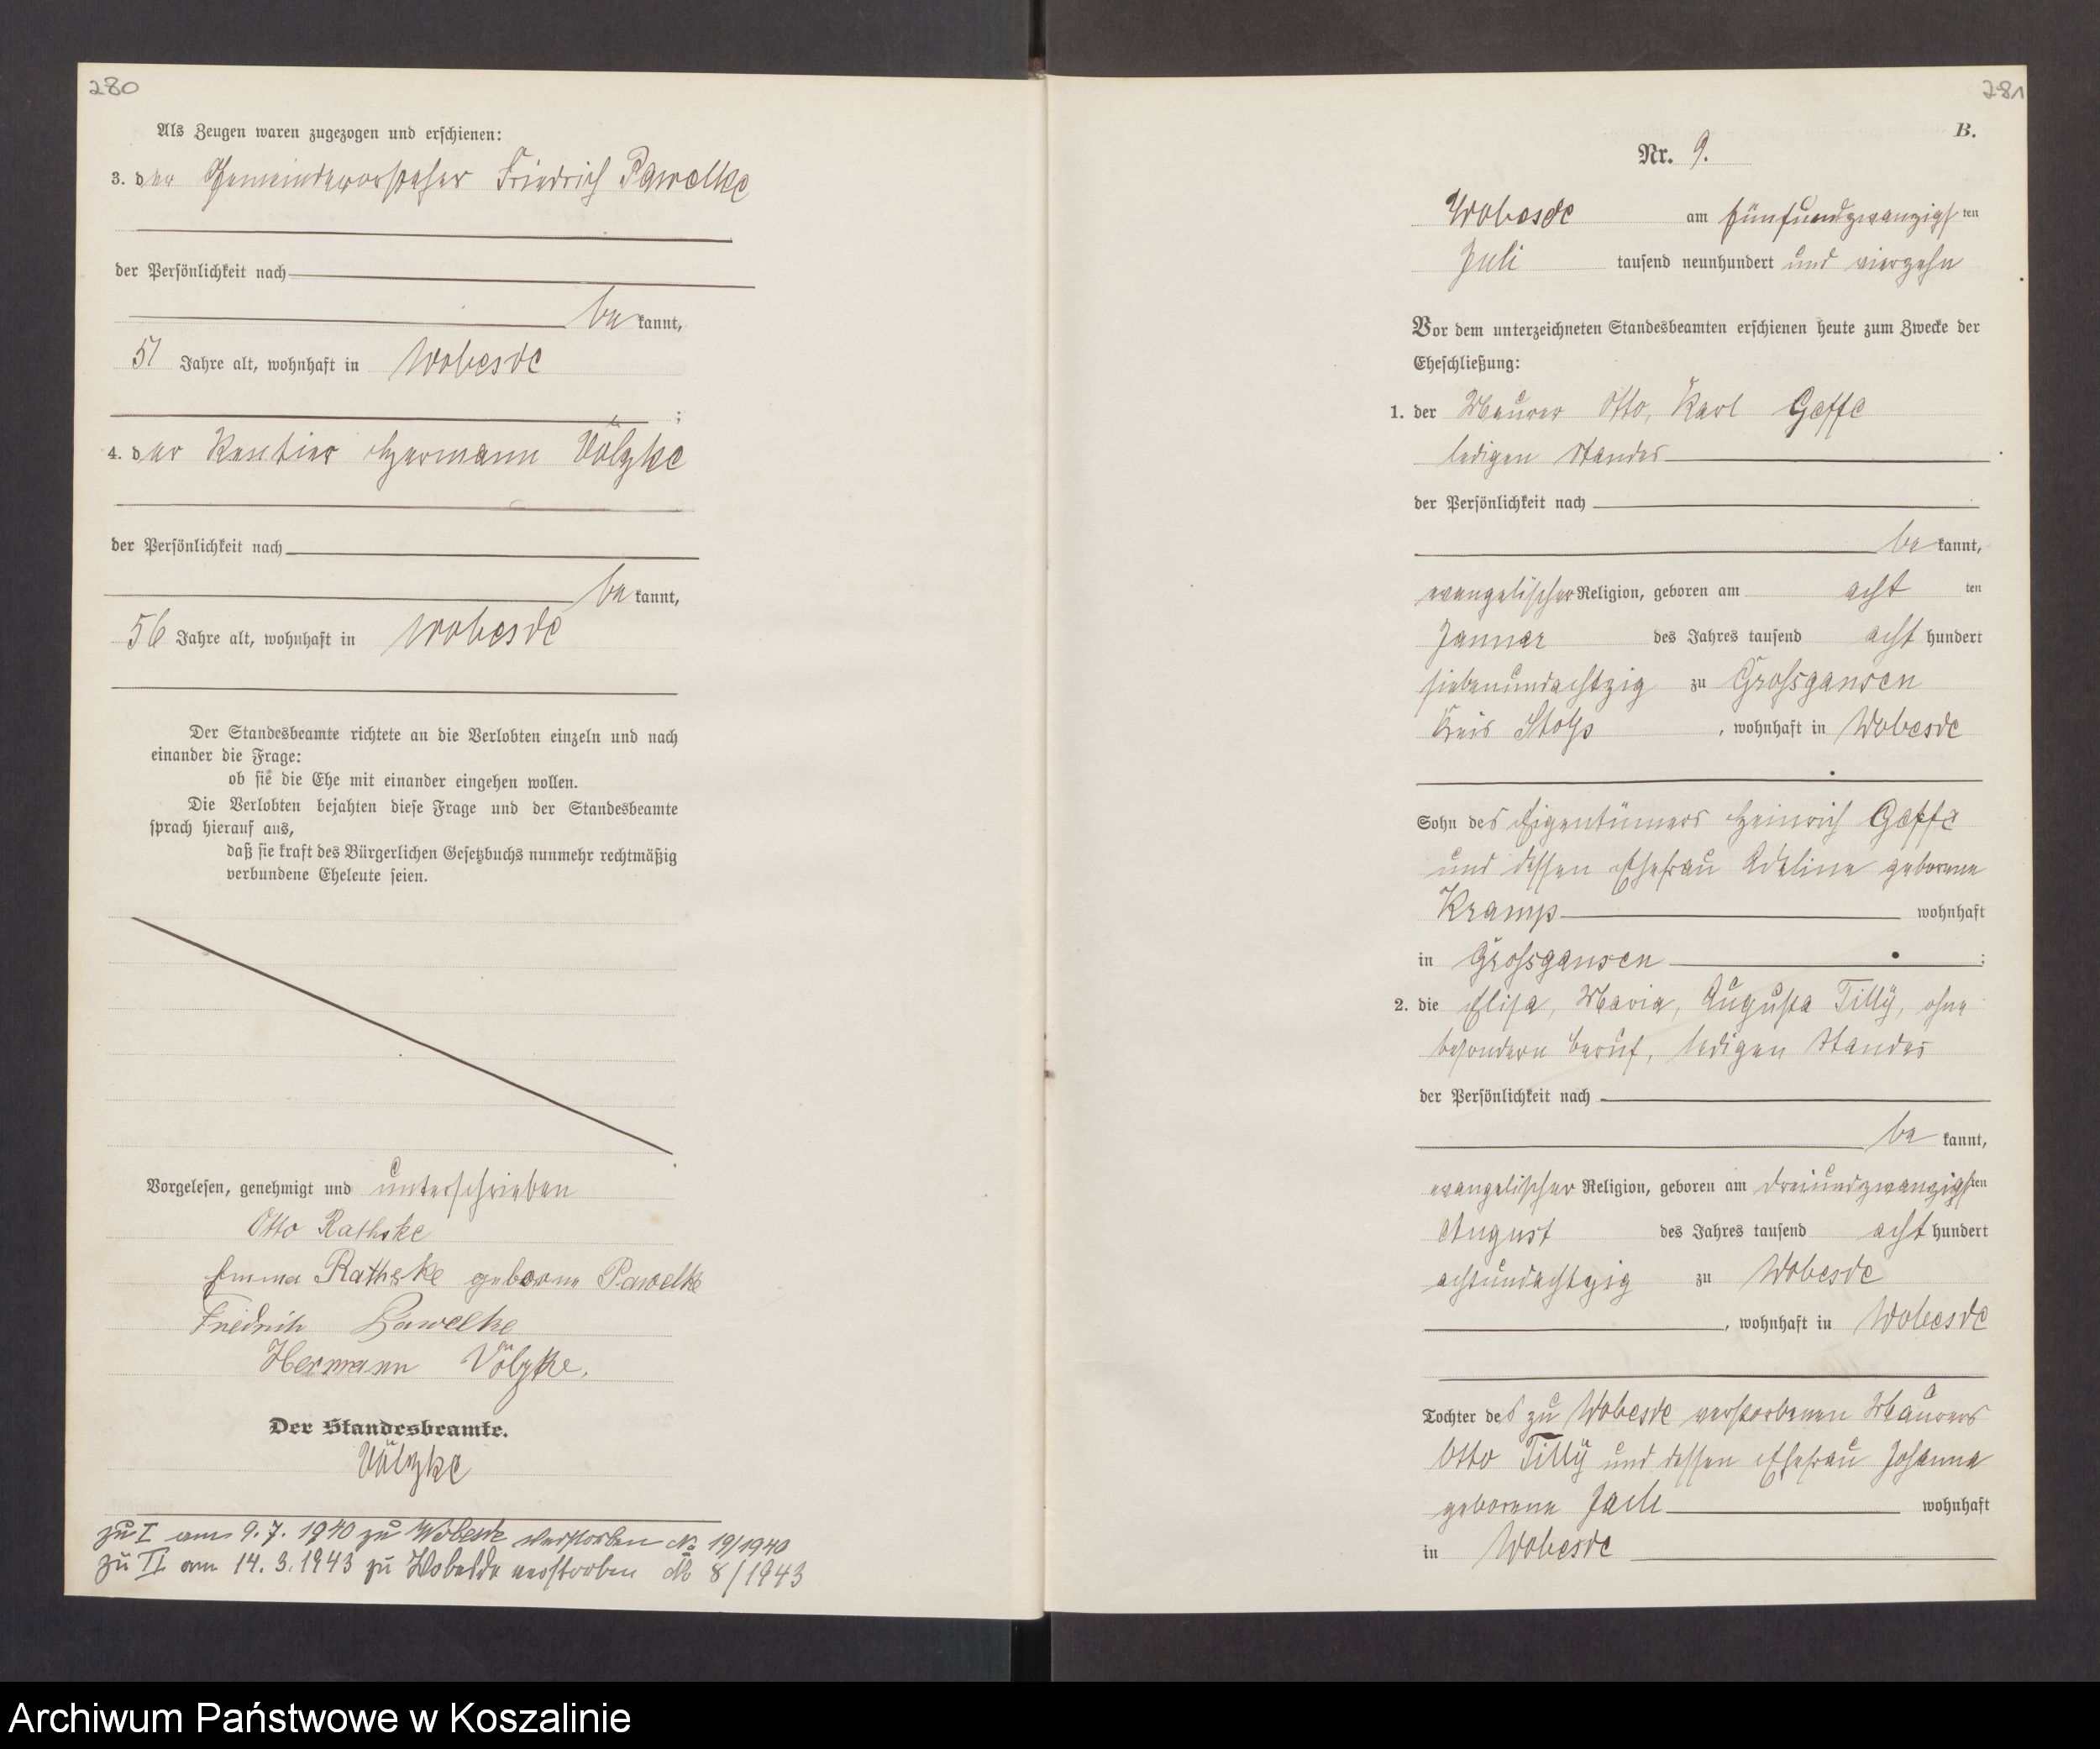 280
Als Zeugen waren zugezogen und erschienen:
3. der Gemeindevorsteher Friedrich Pawelke
der Persönlichkeit nach
bekannt,
51 Jahre alt, wohnhaft in Wobesde
;
4. der Rentier Hermann Völzke
der Persönlichkeit nach
bekannt,
56 Jahre alt, wohnhaft in Wobesde
Der Standesbeamte richtete an die Verlobten einzeln und nach
einander die Frage:
ob sie die Ehe mit einander eingehen wollen.
Die Verlobten bejahten diese Frage und der Standesbeamte
sprach hierauf aus,
daß sie kraft des Bürgerlichen Gesetzbuchs nunmehr rechtmäßig
verbundene Eheleute seien.
Vorgelesen, genehmigt und unterschrieben
Otto Rathske
Emma Rathske geborne Pawelke
Friedrich Pawelke
Hermann Völzke.
Der Standesbeamte.
Völzke
zu I am 9.7.1940 zu Wobesde verstorben No 19/1940
zu II am 14.3.1943 zu Wobesde verstorben No 8/1943
281
B.
Nr. 9.
Wobesde am fünfundzwanzigsten
Juli tausend neunhundert und vierzehn
Vor dem unterzeichneten Standesbeamten erschienen heute zum Zwecke der
Eheschließung:
1. der Maurer Otto, Karl Gaffe
ledigen Standes
der Persönlichkeit nach
bekannt,
evangelischer Religion, geboren am acht ten
Januar des Jahres tausend acht hundert
siebenundachtzig zu Grossgansen
Kreis Stolp, wohnhaft in Wobesde
Sohn des Eigentümers Heinrich Gaffe
und dessen Ehefrau Adeline geborene
Kramp wohnhaft
in Grossgansen ;
2. die Elisa, Maria, Augusta Tilly, ohne
besondern Beruf, ledigen Standes
der Persönlichkeit nach
bekannt,
evangelischer Religion, geboren am dreiundzwanzigsten
August des Jahres tausend acht hundert
achtundachtzig zu Wobesde
, wohnhaft in Wobesde
Tochter des zu Wobesde verstorbenen Maurers
Otto Tilly und dessen Ehefrau Johanna
geborene wohnhaft
in Wobesde
Archiwum Państwowe w Koszalinie